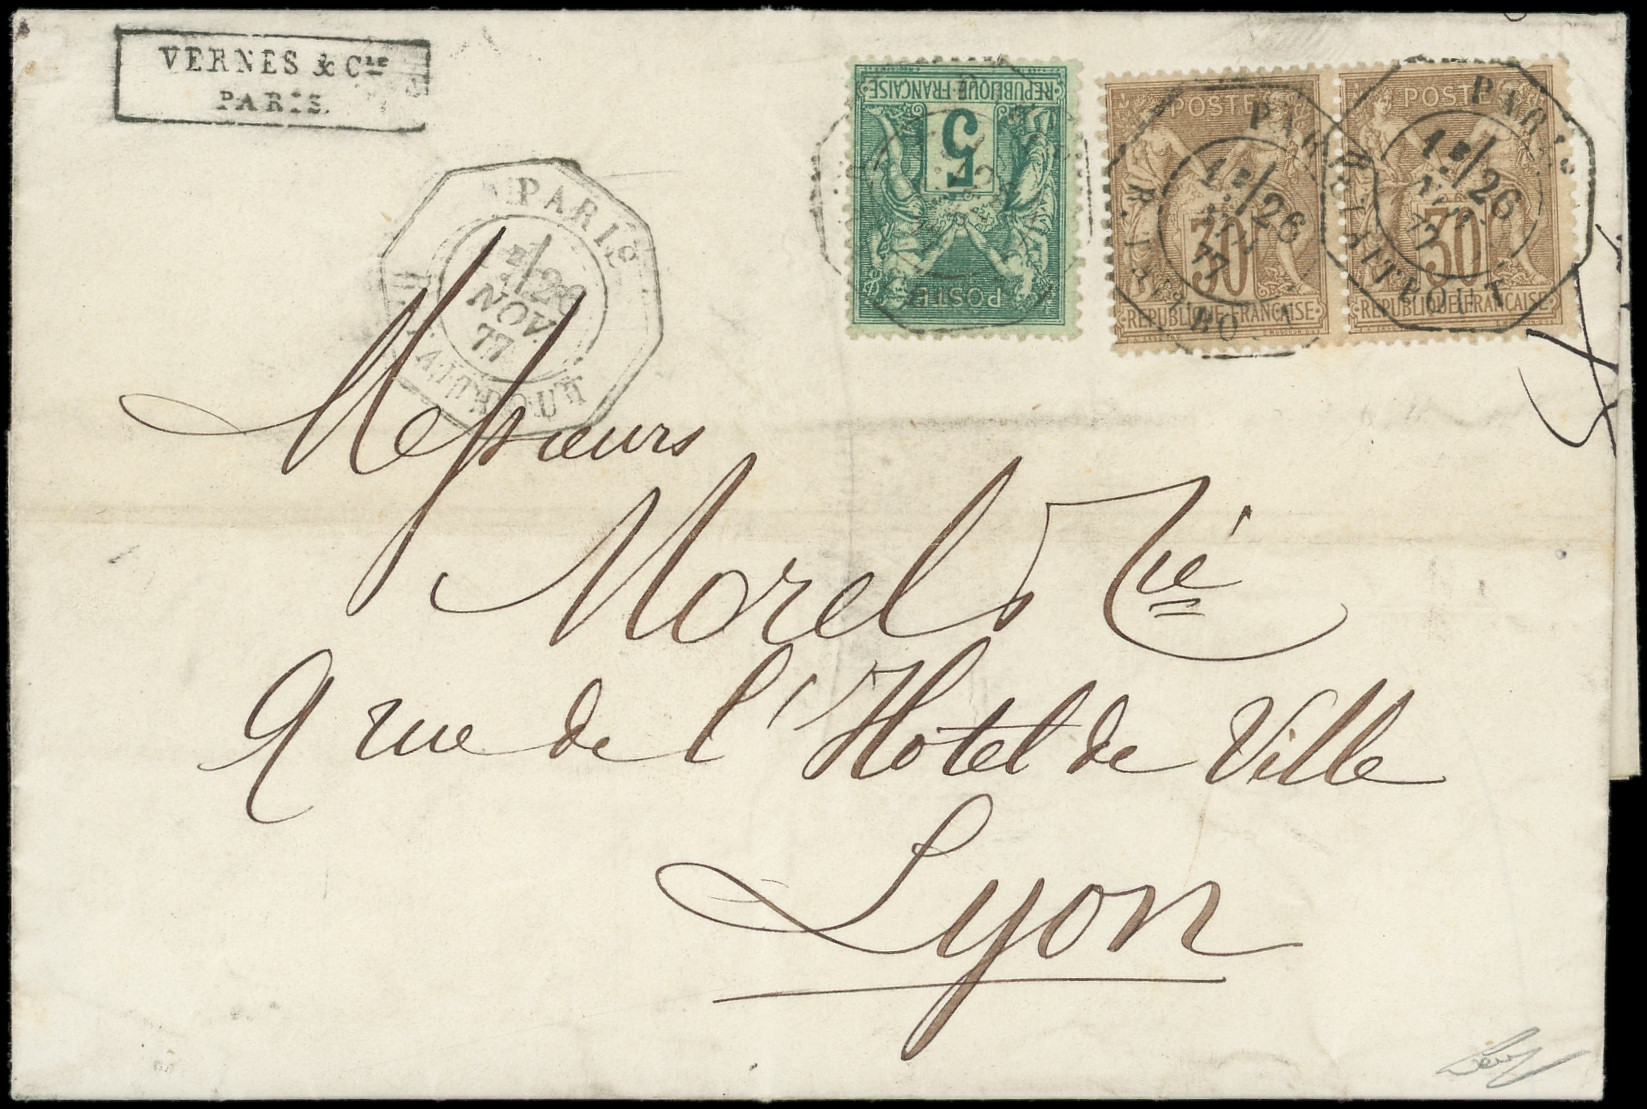 VERNES & Cie
PARIS.
RÉPUBLIQUE FRANÇAISE
5
POSTE
POSTE
30
RÉPUBLIQUE FRANÇAISE
POSTE
30
RÉPUBLIQUE FRANÇAISE
PARIS
1E/26
NOV.
77
PARIS
1E/26
77
R. TAITBOUT
PARIS
E/26
NOV.
77
R. TAITBOUT
Messieurs
Morel & Cie
9 rue de l'Hotel de Ville
Lyon